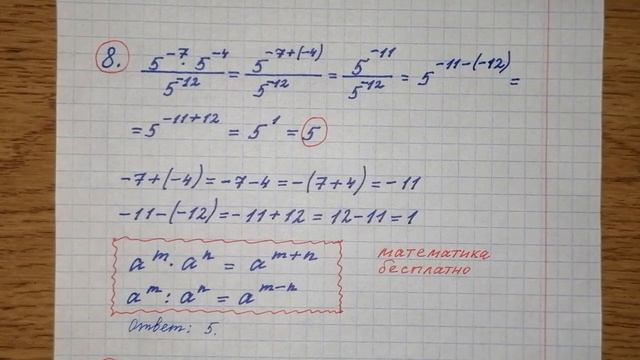 8. 5^-7 · 5^-4 / 5^-12 = 5^-7+(-4) / 5^-12 = 5^-11 / 5^-12 = 5^-11-(-12) =
= 5^-11+12 = 5^1 = 5
-7+(-4) = -7-4 = -(7+4) = -11
-11-(-12) = -11+12 = 12-11 = 1
a^m · a^n = a^m+n
a^m : a^n = a^m-n
математика
бесплатно
Ответ: 5.